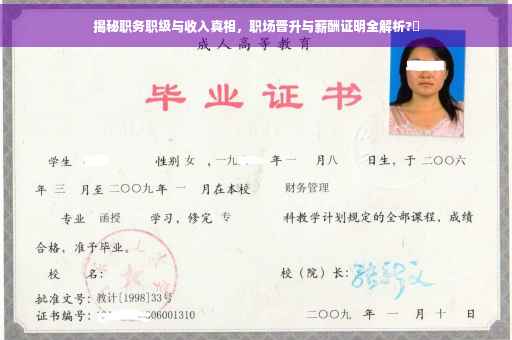 揭秘职务职级与收入真相，职场晋升与薪酬证明全解析?
成人高等教育
毕业证书
学生 性别 女 ，一九 年 一 月 八 日生，于 二〇〇六
年 三 月至 二〇〇九 年 一 月在本校 财务管理
专业 函授 学习，修完 专 科教学计划规定的全部课程，成绩
合格，准予毕业。
校 名： 校（院）长：
批准文号：教计[1998]33号
证书编号： 06001310 二〇〇九 年 一 月 十 日